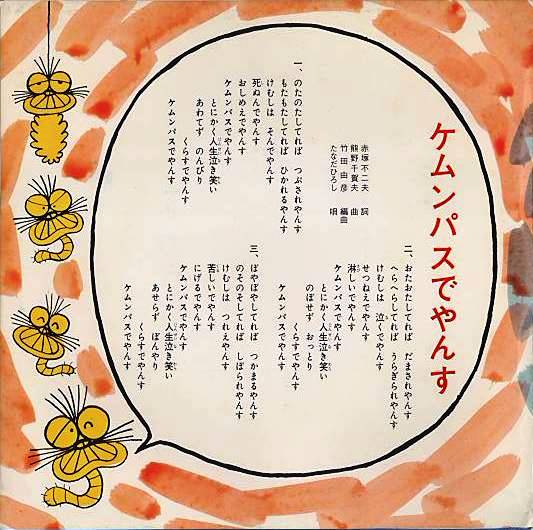 ケムンパスでやんす
赤塚不二夫 詞
熊野千賀夫 曲
竹田由彦 編曲
たなだひろし 唄
一、のたのたしてれば つぶされやんす
もたもたしてれば ひかれるやんす
けむしは そんでやんす
死ぬんでやんす
おしめえでやんす
ケムンパスでやんす
とにかく人生泣き笑い
あわてず のんびり
くらすでやんす
ケムンパスでやんす
二、おたおたしてれば だまされやんす
へらへらしてれば うらぎられやんす
けむしは 泣くでやんす
せつねえでやんす
淋しいでやんす
ケムンパスでやんす
とにかく人生泣き笑い
のぼせず おっとり
くらすでやんす
ケムンパスでやんす
三、ぼやぼやしてれば つかまるやんす
のそのそしてれば しぼられやんす
けむしは つれえやんす
苦しいでやんす
にげるでやんす
ケムンパスでやんす
とにかく人生泣き笑い
あせらず ぼんやり
くらすでやんす
ケムンパスでやんす